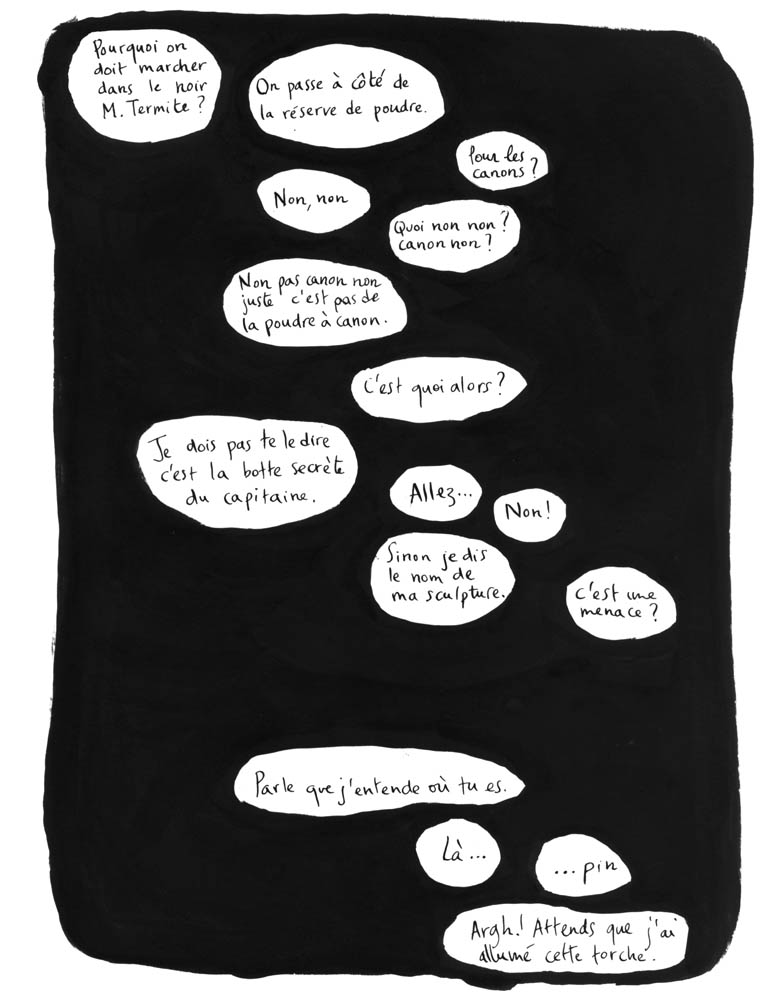 Pourquoi on
doit marcher
dans le noir
M. Termite ?
On passe à côté de
la réserve de poudre.
Pour les
canons ?
Non, non
Quoi non non ?
canon non ?
Non pas canon non
juste c'est pas de
la poudre à canon.
C'est quoi alors ?
Je dois pas te le dire
c'est la botte secrète
du capitaine.
Allez...
Non !
Sinon je dis
le nom de
ma sculpture.
C'est une
menace ?
Parle que j'entende où tu es.
Là...
...pin
Argh ! Attends que j'ai
allumé cette torche.